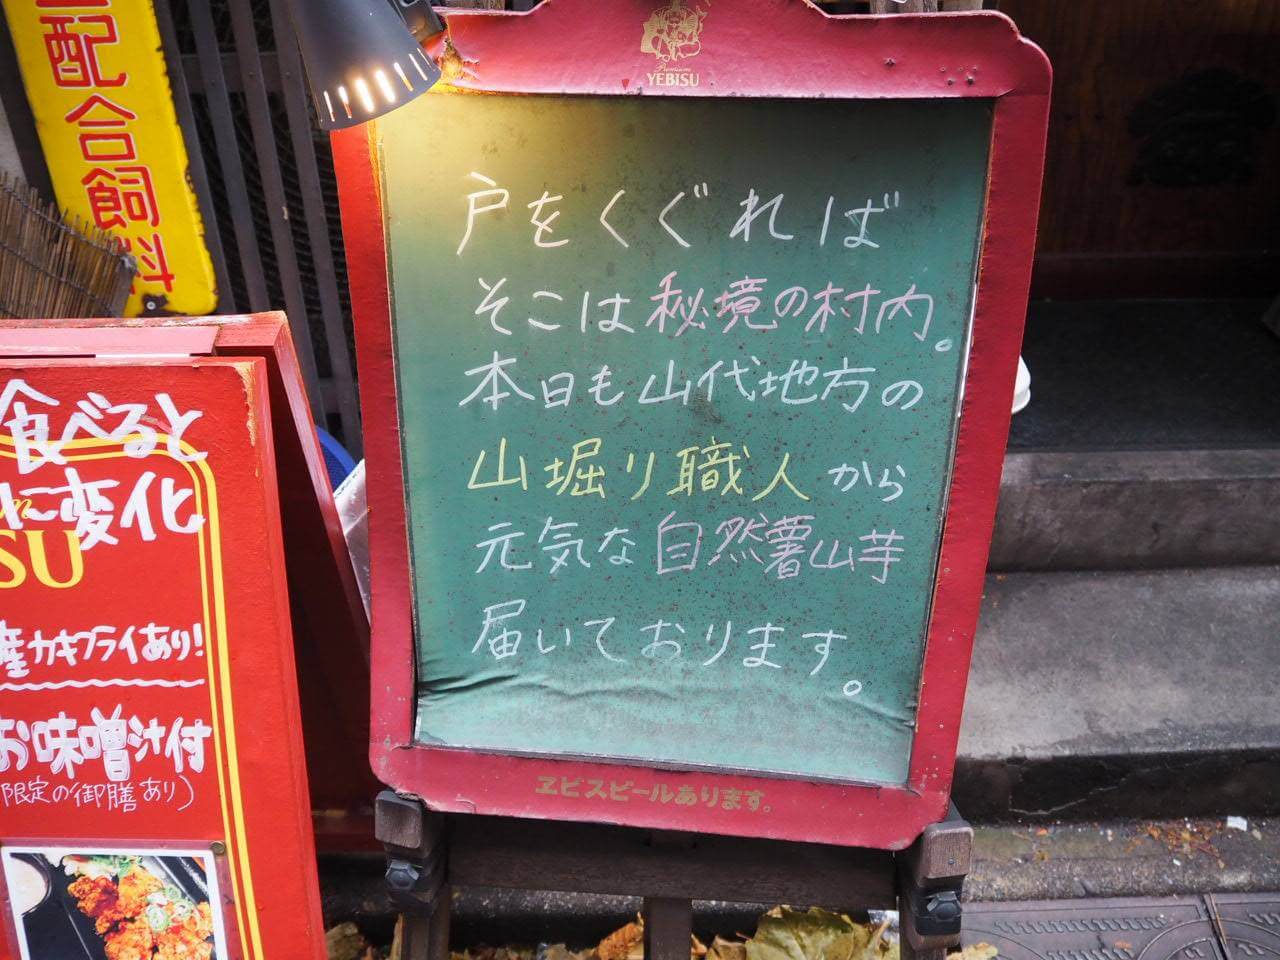 配合飼料
Premium
YEBISU
戸をくぐれば
そこは秘境の村内。
本日も山代地方の
山堀り職人から
元気な自然薯山芋
届いております。
ヱビスビールあります。
食べると
に変化
SU
産カキフライあり!
お味噌汁付
限定の御膳あり)